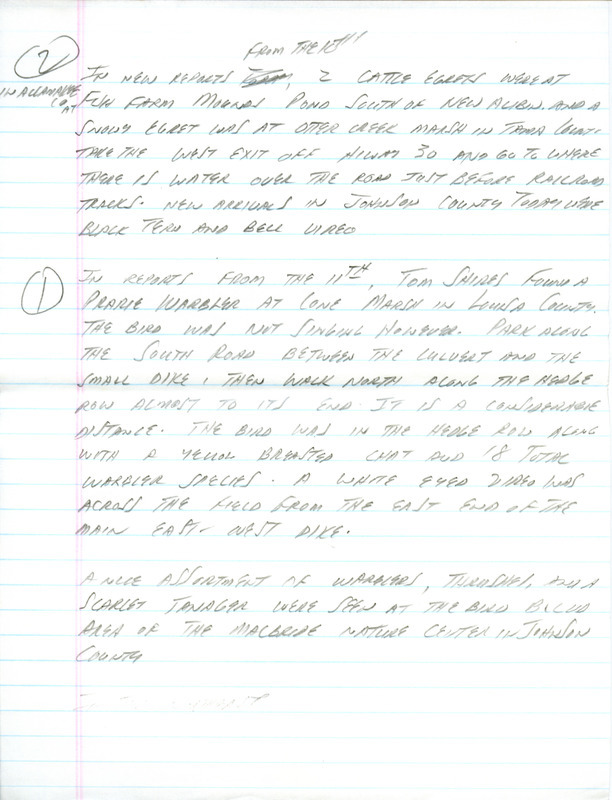 FROM THE 10TH
② IN NEW REPORTS, 2 CATTLE EGRETS WERE AT
IN ALLAMAKEE CO AT
FISH FARM MOUNDS POND SOUTH OF NEW ALBIN. AND A
SNOWY EGRET WAS AT OTTER CREEK MARSH IN TAMA COUNTY.
TAKE THE WEST EXIT OFF HIWAY 30 AND GO TO WHERE
THERE IS WATER OVER THE ROAD JUST BEFORE RAILROAD
TRACKS. NEW ARRIVALS IN JOHNSON COUNTY TODAY WERE
BLACK TERN AND BELL VIREO
① IN REPORTS FROM THE 11TH, TOM SHIRES FOUND A
PRARIE WARBLER AT CONE MARSH IN LOUISA COUNTY.
THE BIRD WAS NOT SINGING HOWEVER. PARK ALONG
THE SOUTH ROAD BETWEEN THE CULVERT AND THE
SMALL DIKE, THEN WALK NORTH ALONG THE HEDGE
ROW ALMOST TO ITS END. IT IS A CONSIDERABLE
DISTANCE. THE BIRD WAS IN THE HEDGE ROW ALONG
WITH A YELLOW BREASTED CHAT AND 18 TOTAL
WARBLER SPECIES. A WHITE EYED VIREO WAS
ACROSS THE FIELD FROM THE EAST END OF THE
MAIN EAST-WEST DIKE.
A NICE ASSORTMENT OF WARBLERS, THRUSHES, AND A
SCARLET TANAGER WERE SEEN AT THE BIRD BLIND
AREA OF THE MACBRIDE NATURE CENTER IN JOHNSON
COUNTY